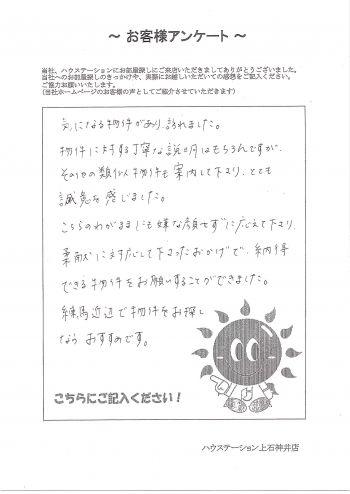 ～ お客様アンケート ～
当社、ハウステーションにお部屋探しにご来店いただきましてありがとうございました。
当社へのお部屋探しのきっかけや、実際にお越しいただいての感想をご記入ください。
ご協力お願いいたします。
(当社ホームページのお客様の声としてご紹介させていただきます)
気になる物件があり、訪れました。
物件に対する丁寧な説明はもちろんですが、
その他の類似物件も案内して下さり、とても
誠意を感じました。
こちらのわがままにも嫌な顔せずに応えて下さり、
柔軟に対応して下さったおかげで、納得
できる物件をお願いすることができました。
練馬近辺で物件をお探し
なら おすすめです。
こちらにご記入ください!
ハウステーション上石神井店